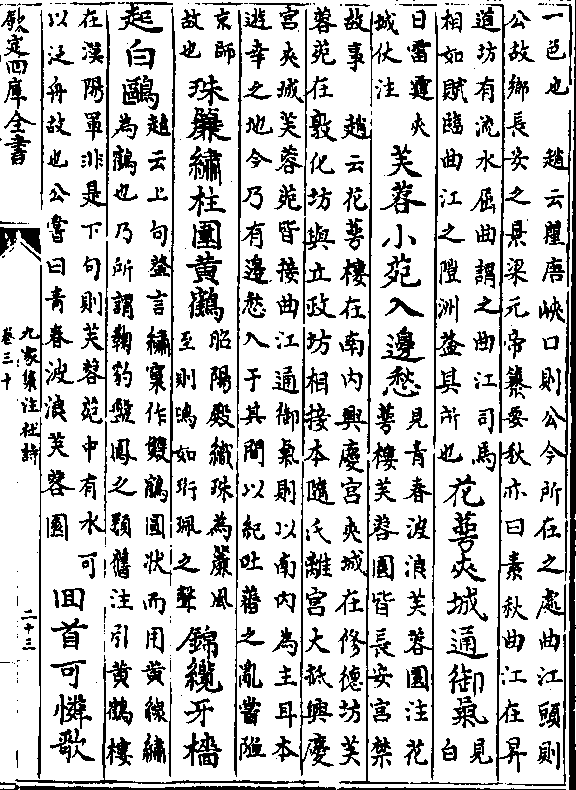 一邑也　趙云瞿唐峽口則公今所在之處曲江頭則
公故鄉長安之景梁元帝纂要秋亦曰素秋曲江在昇
道坊有流水屈曲謂之曲江司馬
相如賦臨曲江之隑洲蓋其所也
花萼夾城通御氣
見
白
日雷霆夾
城仗注
芙蓉小苑入邊愁
見青春波浪芙蓉園注花
萼樓芙蓉園皆長安宫禁
故事　趙云花萼樓在南内興慶宫夾城在修德坊芙
蓉苑在敦化坊與立政坊相接本隨氏離宫大抵興慶
宫夾城芙蓉苑皆接曲江通御氣則以南内為主耳本
遊幸之地今乃有邊愁入于其間以紀吐蕃之亂嘗陷
京師
故也
珠簾繡柱圍黄鶴
昭陽殿織珠為簾風
至則鳴如珩珮之聲
錦纜牙檣
起白鷗
趙云上句蓋言繡窠作雙鶴圓状而用黄線繡
為鶴也乃所謂鞠豹盤鳳之類舊注引黄鶴樓
在漢陽軍非是下句則芙蓉苑中有水可
以泛舟故也公嘗曰青春波浪芙蓉園
回首可憐歌
欽定四庫全書
九家集注杜詩
卷三十
二十三